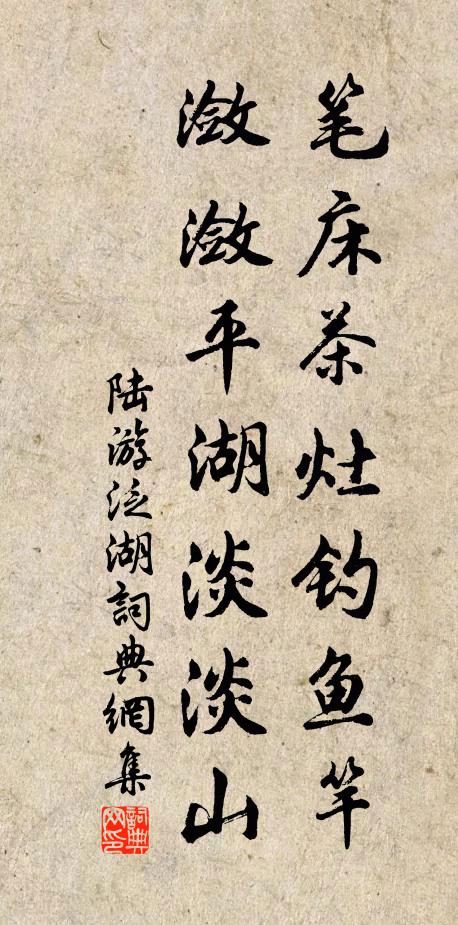 笔床茶灶钓鱼竿
潋潋平湖淡淡山
陆游泛湖詞典網集
詞典网印